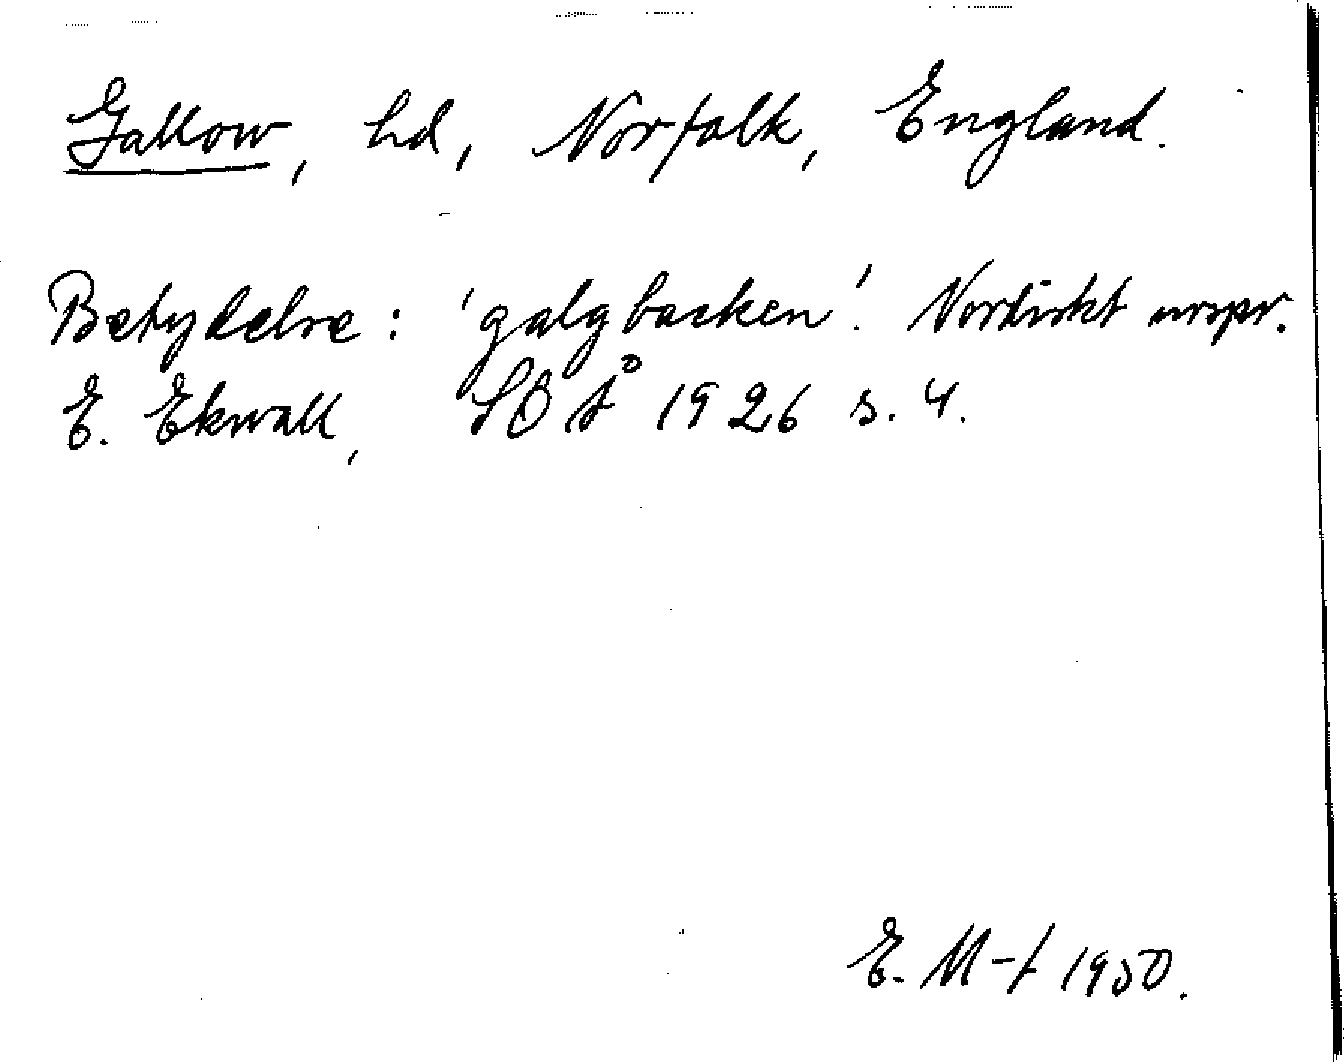 Gallow, hd, Norfolk, England.
Betydelse: 'galgbacken'. Nordiskt urspr.
E. Ekwall, SOÅ 1926 s. 4.
E. M-t 1950.